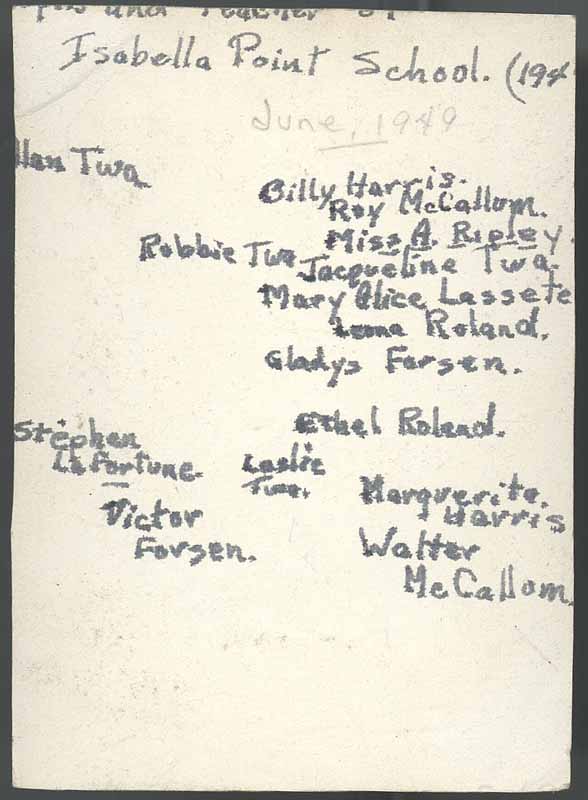 and Teacher of
Isabella Point School. (194
June, 1949
llan Twa
Billy Harris.
Roy McCallum.
Miss A. Ripley.
Robbie Twa
Jacqueline Twa.
Mary Alice Lassete
Leona Roland.
Gladys Forsen.
Ethel Roland.
Stephen
LaFortune.
Leslie
Twa.
Marguerite.
Harris
Victor
Forsen.
Walter
McCallum.